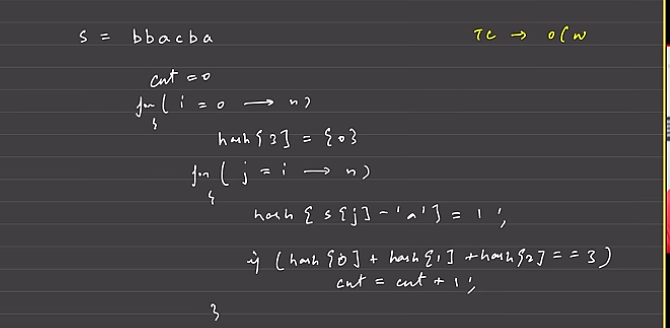 s = bbacba
TC → O(N
cnt = 0
for( i = 0 → n)
{
hash[3] = {0}
for( j = i → n)
{
hash[s[j]-'a'] = 1;
if (hash[0] + hash[1] + hash[2] == 3)
cnt = cnt + 1;
}